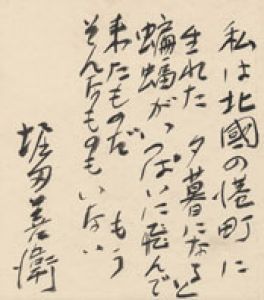 私は北國の港町に
生れた 夕暮になると
蝙蝠がいっぱいに飛んで
来たものだ もう
そんなものもいない
堀田善衛